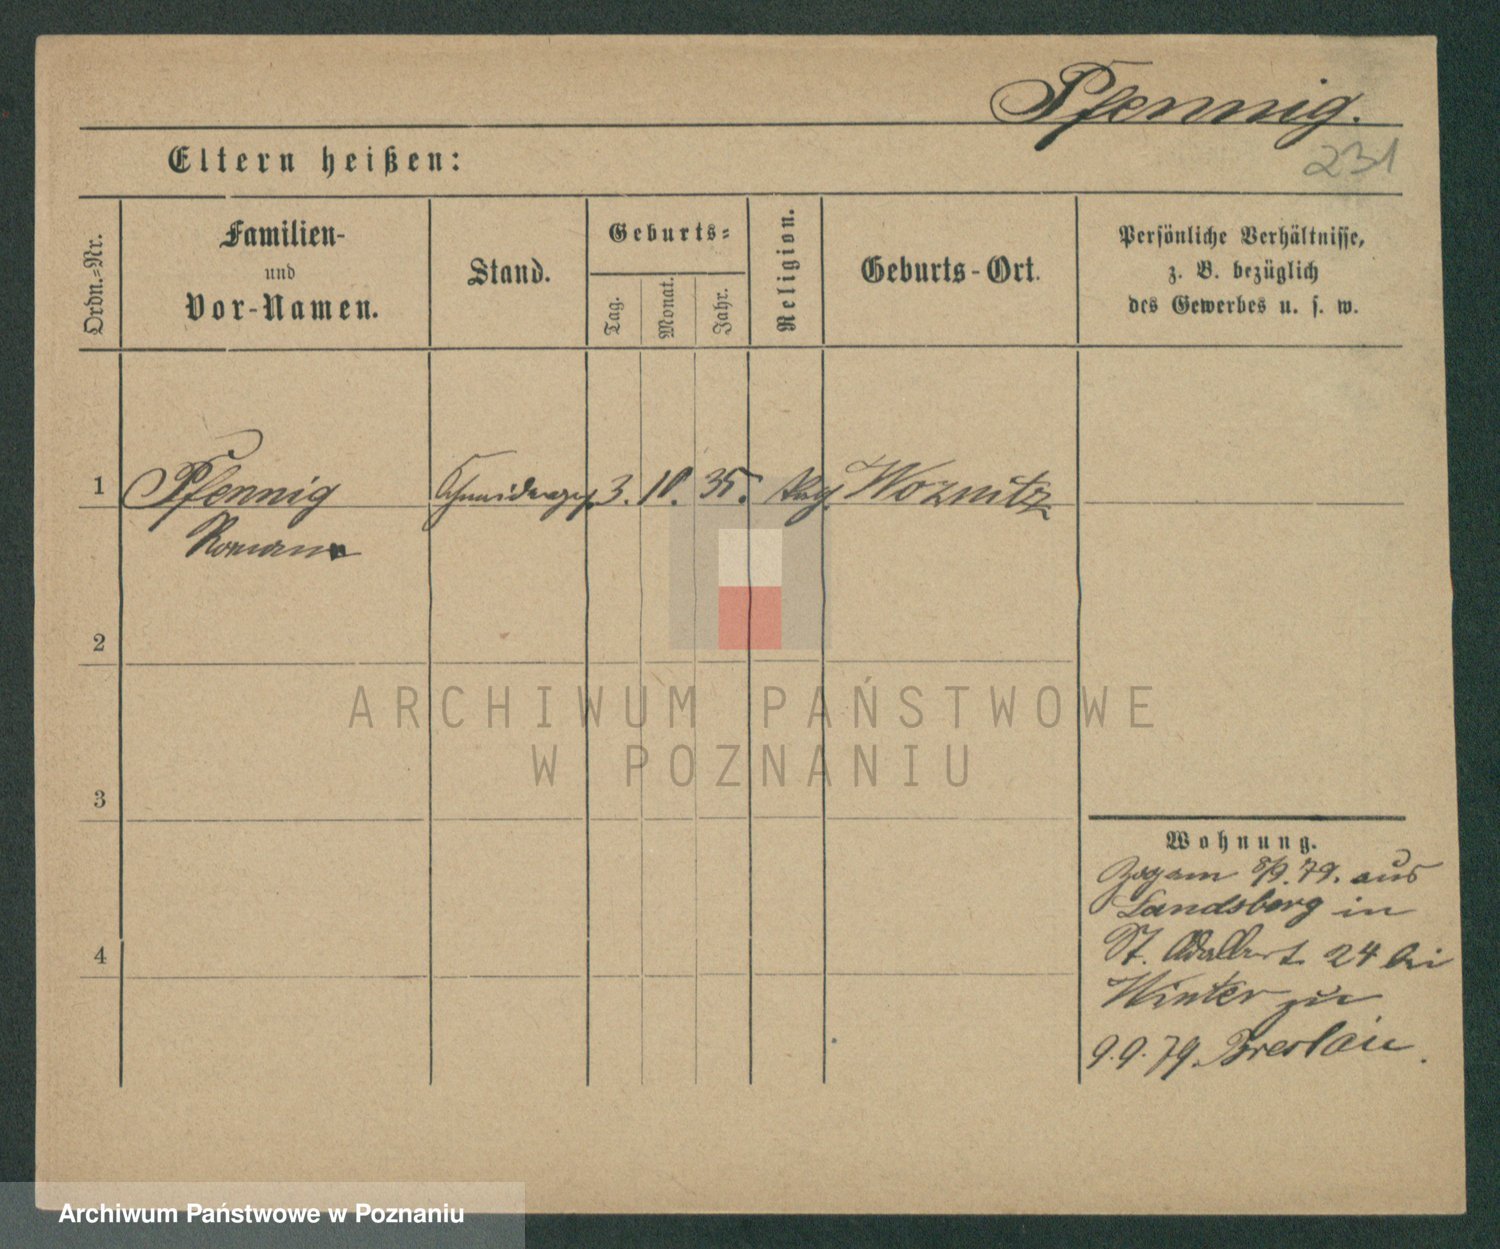 Pfennig.
231
Eltern heißen:
Ordn.-Nr.
Familien-
und
Vor-Namen.
Stand.
Geburts-
Tag.
Monat.
Jahr.
Religion.
Geburts-Ort.
Persönliche Verhältnisse,
z. B. bezüglich
des Gewerbes u. s. w.
1 Pfennig 3. 10. 35. Woznitz
Roman
2
ARCHIWUM PAŃSTWOWE
W POZNANIU
3
Wohnung.
Zog am 8/9. 79. aus
Landsberg in
St. Adalbert 24 bei
Winter zu
4
9.9.79. Breslau.
Archiwum Państwowe w Poznaniu